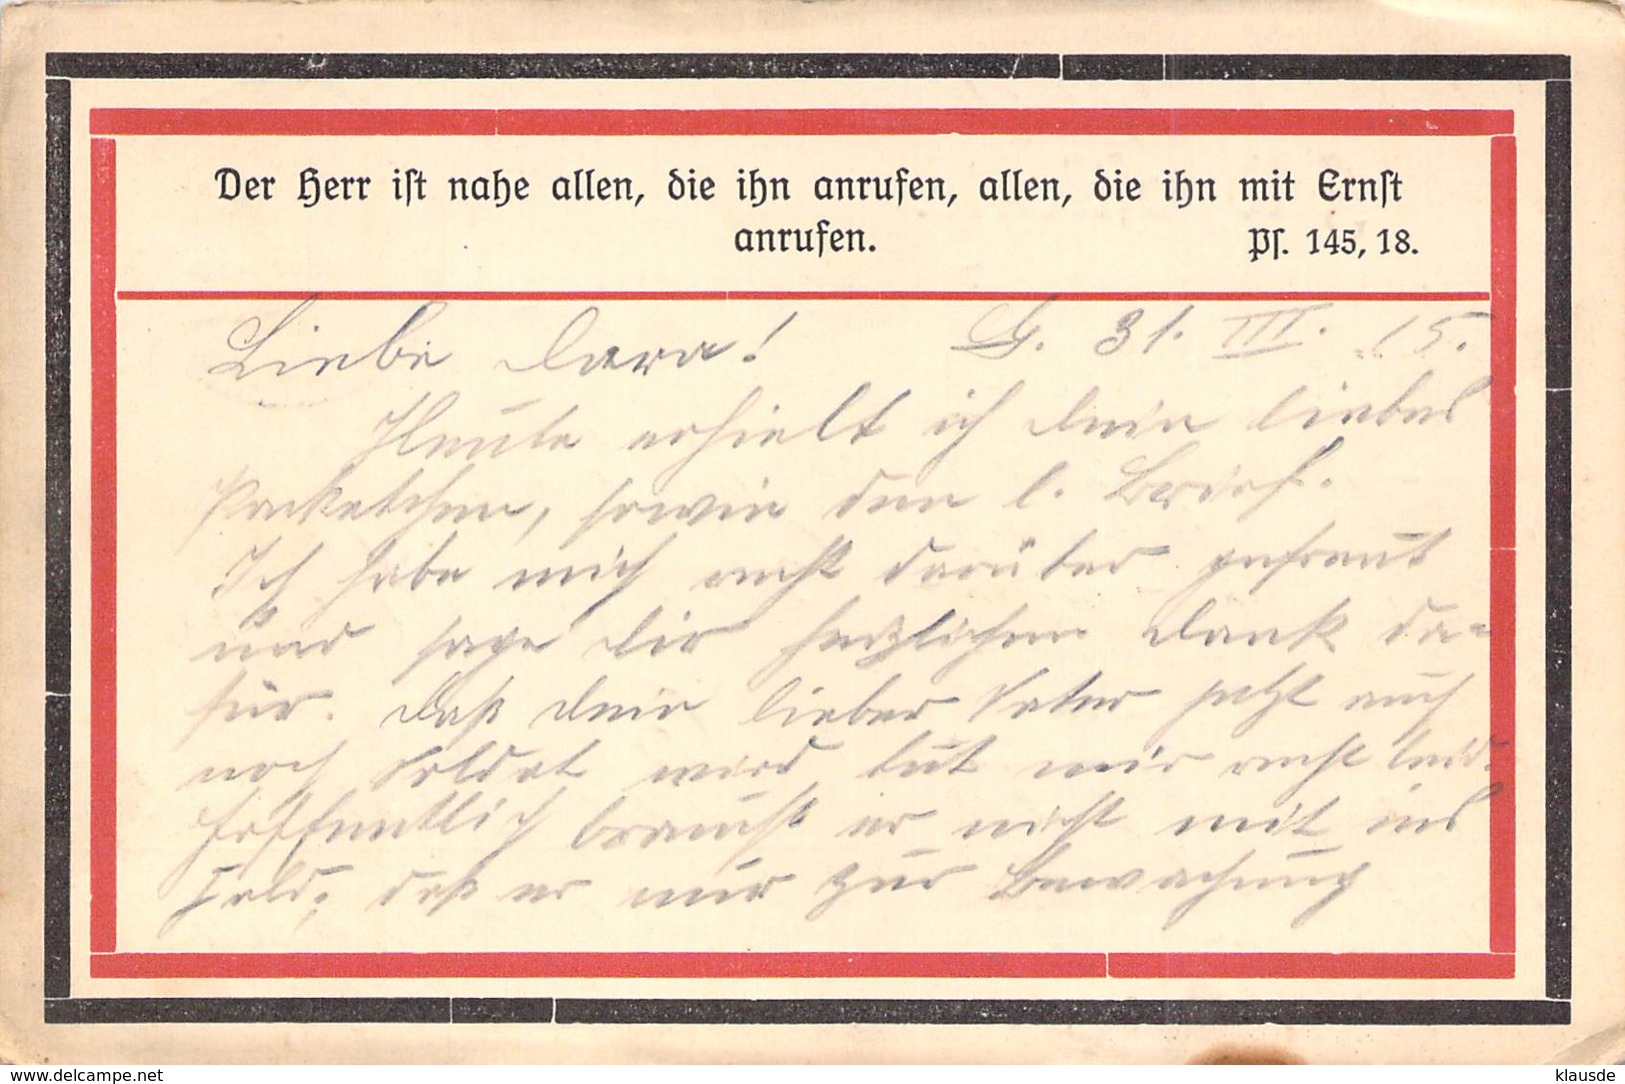 Der Herr ist nahe allen, die ihn anrufen, allen, die ihn mit Ernst
anrufen. Ps. 145, 18.
Liebe Dora! G. 31. III. 15.
Heute erhielt ich Dein liebes
Packetchen, sowie den l. Brief.
Ich habe mich recht darüber gefreut
und sage Dir herzlichen Dank da=
für. Daß Dein lieber Vater jetzt auch
noch Soldat wird, tut mir recht leid.
Hoffentlich braucht er nicht mit ins
Feld, daß er nur zur Bewachung
www.delcampe.net
klausde